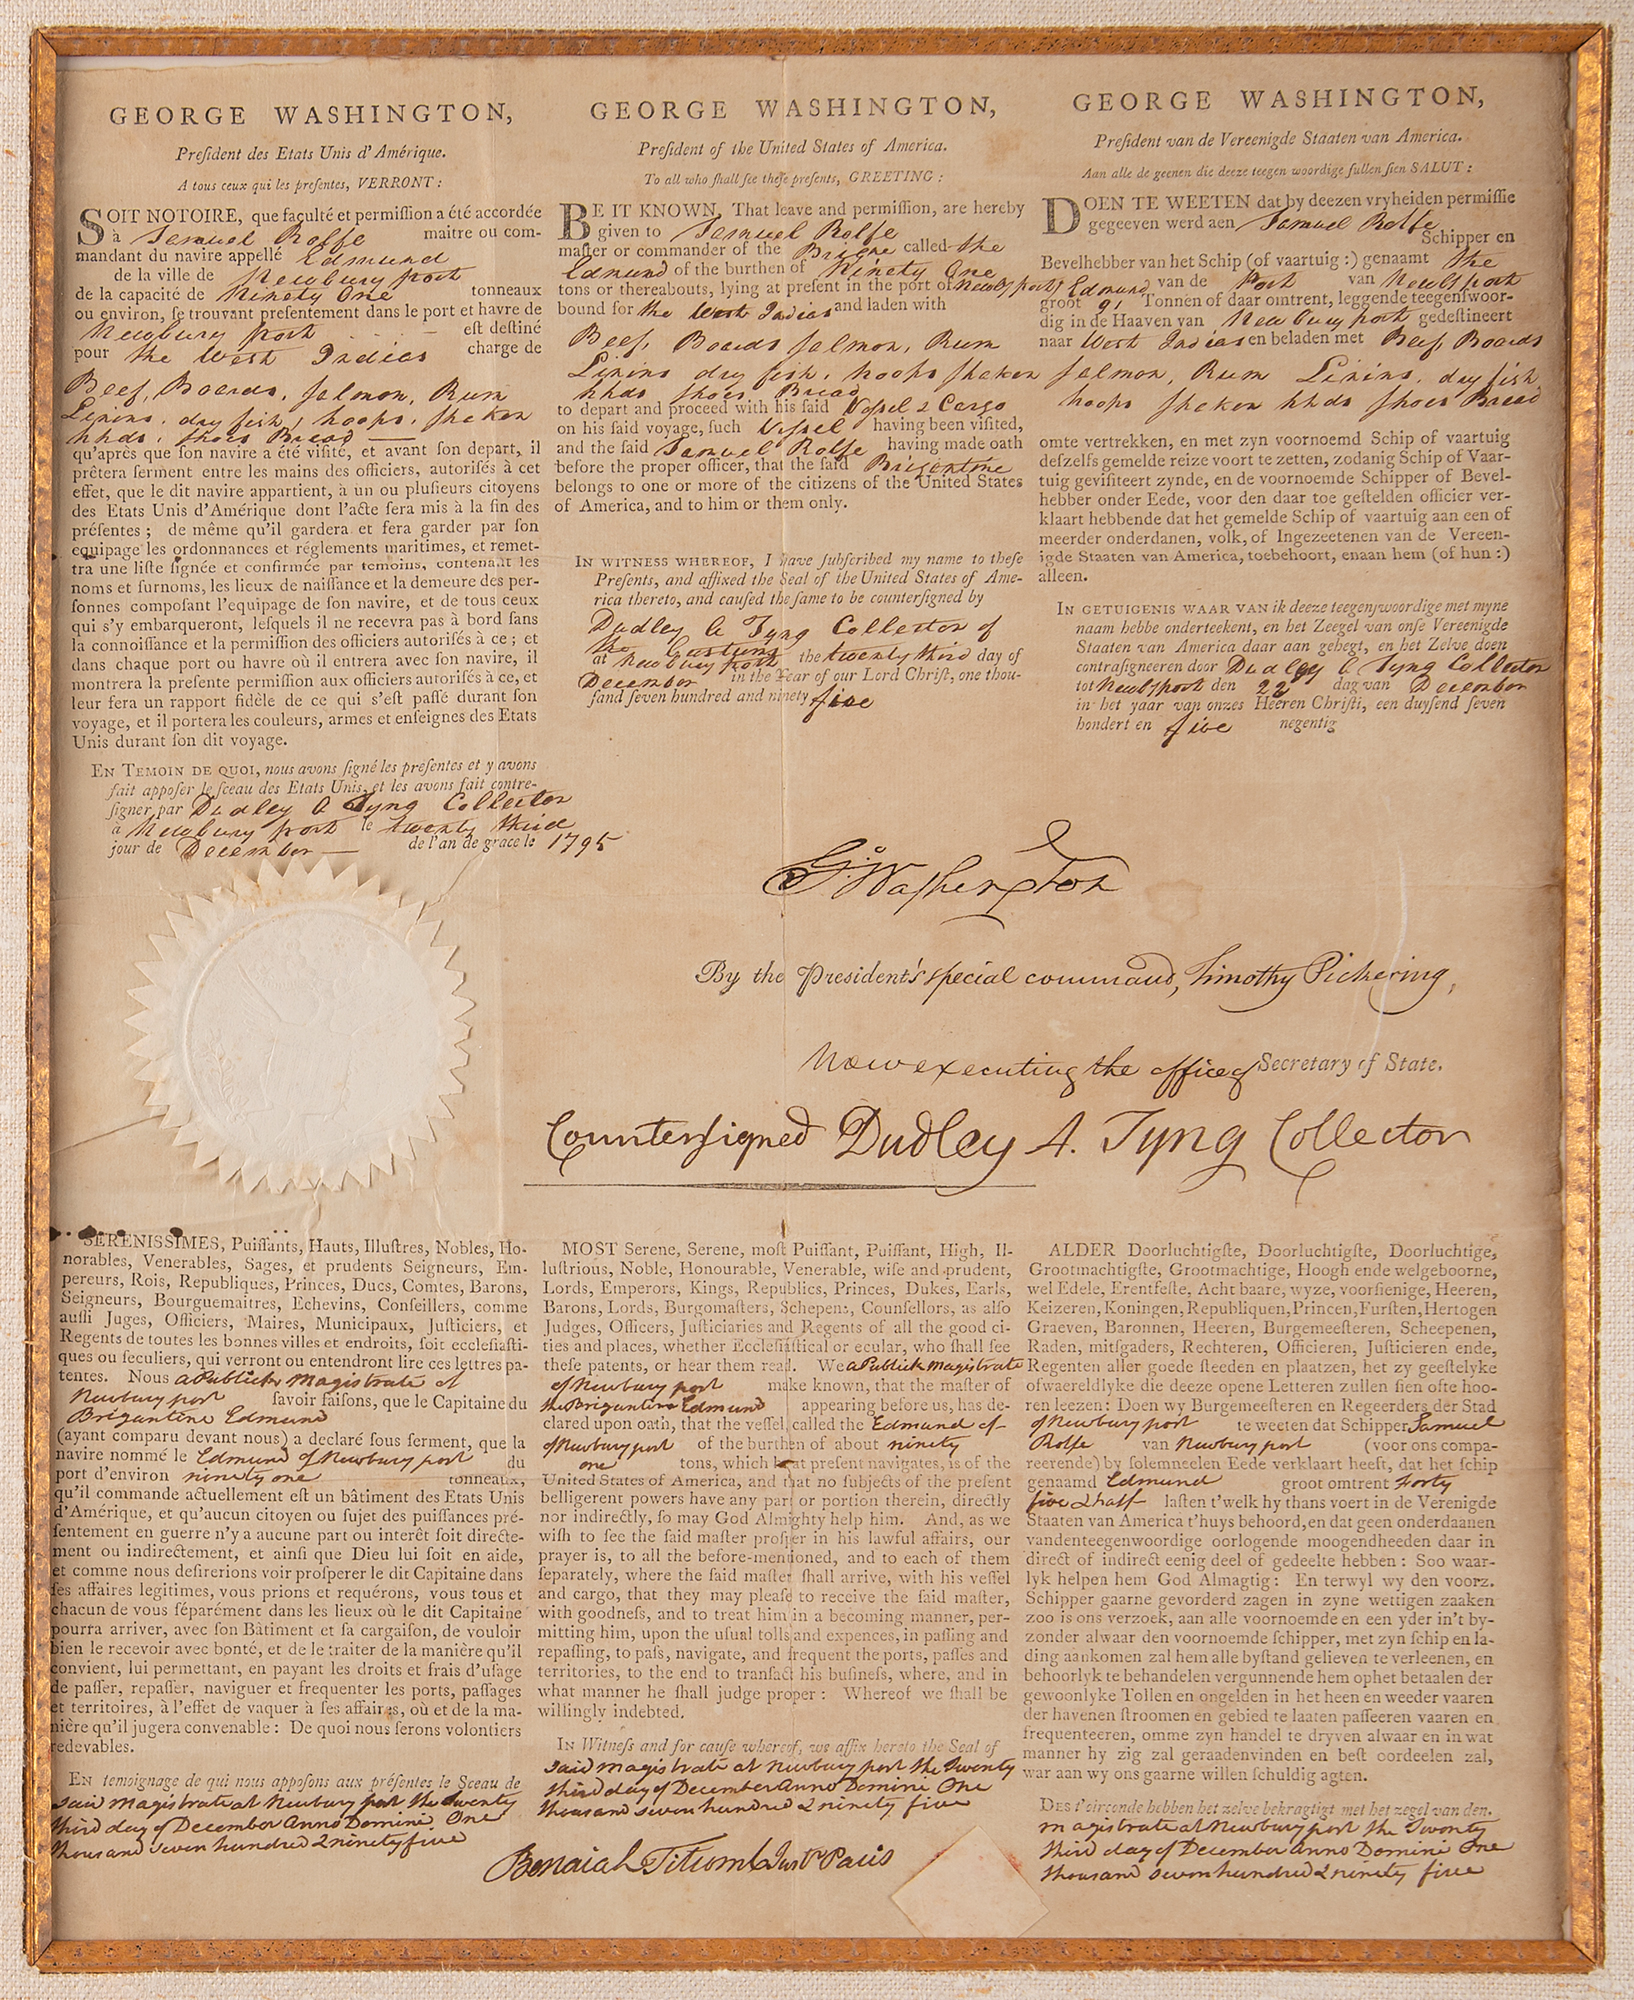 GEORGE WASHINGTON,
President des Etats Unis d'Amérique.
A tous ceux qui les presentes, VERRONT :
SOIT NOTOIRE, que faculté et permission a été accordée
à Samuel Rolfe maitre ou com-
mandant du navire appellé Edmund
de la ville de Newbury port
de la capacité de Ninety One tonneaux
ou environ, se trouvant presentement dans le port et havre de
Newbury port est destiné
pour the West Indies charge de
Beef, Boards, salmon, Rum
Linins, dry fish, hoops, shaken
hhds, shoes Bread
qu'aprés que son navire a été visité, et avant son depart, il
prêtera serment entre les mains des officiers, autorisés à cet
effet, que le dit navire appartient, à un ou plusieurs citoyens
des Etats Unis d'Amérique dont l'acte sera mis à la fin des
présentes ; de même qu'il gardera et fera garder par son
equipage les ordonnances et réglements maritimes, et remet-
tra une liste signée et confirmée par temoins, contenant les
noms et surnoms, les lieux de naissance et la demeure des per-
sonnes composant l'equipage de son navire, et de tous ceux
qui s'y embarqueront, lesquels il ne recevra pas à bord sans
la connoissance et la permission des officiers autorisés à ce ; et
dans chaque port ou havre où il entrera avec son navire, il
montrera la presente permission aux officiers autorisés à ce, et
leur fera un rapport fidèle de ce qui s'est passé durant son
voyage, et il portera les couleurs, armes et enseignes des Etats
Unis durant son dit voyage.
EN TEMOIN DE QUOI, nous avons signé les presentes et y avons
fait apposer le sceau des Etats Unis, et les avons fait contre-
signer par Dudley A Tyng Collector
à Newbury port le twenty third
jour de December de l'an de grace le 1795
GEORGE WASHINGTON,
President of the United States of America.
To all who shall see these presents, GREETING :
BE IT KNOWN, That leave and permission, are hereby
given to Samuel Rolfe
master or commander of the Brigne called the
Edmund of the burthen of Ninety One
tons or thereabouts, lying at present in the port of Newby port
bound for the West Indies and laden with
Beef, Boards salmon, Rum
Linins dry fish, hoops shaken
hhds shoes Bread
to depart and proceed with his said Vessel & Cargo
on his said voyage, such Vessel having been visited,
and the said Samuel Rolfe having made oath
before the proper officer, that the said Brigentine
belongs to one or more of the citizens of the United States
of America, and to him or them only.
IN WITNESS WHEREOF, I have subscribed my name to these
Presents, and affixed the Seal of the United States of Ame-
rica thereto, and caused the same to be countersigned by
Dudley A Tyng Collector of
the Customs
at Newbury port the twenty third day of
December in the Year of our Lord Christ, one thou-
sand seven hundred and ninety five
GEORGE WASHINGTON,
President van de Vereenigde Staaten van America.
Aan alle de geenen die deeze teegen woordige sullen sien SALUT :
DOEN TE WEETEN dat by deezen vryheiden permissie
gegeeven werd aen Samuel Rolfe
Schipper en
Bevelhebber van het Schip (of vaartuig :) genaamt the
Edmund van de Port van Newby port
groot 91 Tonnen of daar omtrent, leggende teegenswoor-
dig in de Haaven van Newbury port gedestineert
naar West Indies en beladen met Beef Boards
salmon, Rum Linins, dry fish,
hoops shaken hhds shoes Bread
omte vertrekken, en met zyn voornoemd Schip of vaartuig
deszelfs gemelde reize voort te zetten, zodanig Schip of Vaar-
tuig gevisiteert zynde, en de voornoemde Schipper of Bevel-
hebber onder Eede, voor den daar toe gestelden officier ver-
klaart hebbende dat het gemelde Schip of vaartuig aan een of
meerder onderdanen, volk, of Ingezeetenen van de Vereen-
igde Staaten van America, toebehoort, en aan hem (of hun :)
alleen.
IN GETUIGENIS WAAR VAN ik deeze teegenswoordige met myne
naam hebbe onderteekent, en het Zeegel van onse Vereenigde
Staaten van America daar aan gehegt, en het Zelve doen
contrasigneeren door Dudley A Tyng Collector
tot Newby port den 22 dag van December
in het yaar van onzes Heeren Christi, een duysend seven
hondert en five negentig
G:o Washington
By the President's special command, Timothy Pickering,
Now executing the office of Secretary of State.
Countersigned Dudley A. Tyng Collector
SERENISSIMES, Puissants, Hauts, Illustres, Nobles, Ho-
norables, Venerables, Sages, et prudents Seigneurs, Em-
pereurs, Rois, Republiques, Princes, Ducs, Comtes, Barons,
Seigneurs, Bourguemaitres, Echevins, Conseillers, comme
aussi Juges, Officiers, Maires, Municipaux, Justiciers, et
Regents de toutes les bonnes villes et endroits, soit ecclesiasti-
ques ou seculiers, qui verront ou entendront lire ces lettres pa-
tentes. Nous a Publick Magistrate of
Newbury port savoir faisons, que le Capitaine du
Brigantine Edmund
(ayant comparu devant nous) a declaré sous serment, que la
navire nommé le Edmund of Newbury port du
port d'environ ninety one tonneaux,
qu'il commande actuellement est un bâtiment des Etats Unis
d'Amérique, et qu'aucun citoyen ou sujet des puissances pré-
sentement en guerre n'y a aucune part ou interêt soit directe-
ment ou indirectement, et ainsi que Dieu lui soit en aide,
et comme nous desirerions voir prosperer le dit Capitaine dans
ses affaires legitimes, vous prions et requérons, vous tous et
chacun de vous séparément dans les lieux où le dit Capitaine
pourra arriver, avec son Bâtiment et sa cargaison, de vouloir
bien le recevoir avec bonté, et de le traiter de la manière qu'il
convient, lui permettant, en payant les droits et frais d'usage
de passer, repasser, naviguer et frequenter les ports, passages
et territoires, à l'effet de vaquer à ses affaires, où et de la ma-
nière qu'il jugera convenable : De quoi nous serons volontiers
redevables.
EN temoignage de qui nous apposons aux présentes le Sceau de
said magistrate at Newbury port the Twenty
third day of December Anno Domini One
thousand seven hundred & ninety five
MOST Serene, Serene, most Puissant, Puissant, High, Il-
lustrious, Noble, Honourable, Venerable, wise and prudent,
Lords, Emperors, Kings, Republics, Princes, Dukes, Earls,
Barons, Lords, Burgomasters, Schepens, Counsellors, as also
Judges, Officers, Justiciaries and Regents of all the good ci-
ties and places, whether Ecclesiastical or ecular, who shall see
these patents, or hear them read. We a Publick magistrate
of Newbury port make known, that the master of
the Brigantine Edmund appearing before us, has de-
clared upon oath, that the vessel, called the Edmund of
of Newbury port of the burthen of about ninety
one tons, which he at present navigates, is of the
United States of America, and that no subjects of the present
belligerent powers have any part or portion therein, directly
nor indirectly, so may God Almighty help him. And, as we
wish to see the said master prosper in his lawful affairs, our
prayer is, to all the before-mentioned, and to each of them
separately, where the said master shall arrive, with his vessel
and cargo, that they may please to receive the said master,
with goodness, and to treat him in a becoming manner, per-
mitting him, upon the usual tolls and expences, in passing and
repassing, to pass, navigate, and frequent the ports, passes and
territories, to the end to transact his business, where, and in
what manner he shall judge proper : Whereof we shall be
willingly indebted.
IN Witness and for cause whereof, we affix hereto the Seal of
said magistrate at Newbury port the Twenty
third day of December Anno Domini One
thousand seven hundred & ninety five
Benaiah Titcomb Just Pacis
ALDER Doorluchtigste, Doorluchtigste, Doorluchtige,
Grootmachtigste, Grootmachtige, Hoogh ende welgeboorne,
wel Edele, Erentfeste, Acht baare, wyze, voorsienige, Heeren,
Keizeren, Koningen, Republiquen, Princen, Fursten, Hertogen
Graeven, Baronnen, Heeren, Burgemeesteren, Scheepenen,
Raden, mitsgaders, Rechteren, Officieren, Justicieren ende,
Regenten aller goede steeden en plaatzen, het zy geestelyke
ofwaereldlyke die deeze opene Letteren zullen sien ofte hoo-
ren leezen : Doen wy Burgemeesteren en Regeerders der Stad
of Newbury port te weeten dat Schipper Samuel
Rolfe van Newbury port (voor ons compa-
reerende) by solemneelen Eede verklaart heeft, dat het schip
genaamd Edmund groot omtrent Forty
five & half lasten t'welk hy thans voert in de Verenigde
Staaten van America t'huys behoord, en dat geen onderdaanen
vandenteegenwoordige oorlogende moogendheeden daar in
direct of indirect eenig deel of gedeelte hebben : Soo waar-
lyk helpen hem God Almagtig : En terwyl wy den voorz.
Schipper gaarne gevorderd zagen in zyne wettigen zaaken
zoo is ons verzoek, aan alle voornoemde en een yder in't by-
zonder alwaar den voornoemde schipper, met zyn schip en la-
ding aankomen zal hem alle bystand gelieven te verleenen, en
behoorlyk te behandelen vergunnende hem ophet betaalen der
gewoonlyke Tollen en ongelden in het heen en weeder vaaren
der havenen stroomen en gebied te laaten passeeren vaaren en
frequenteeren, omme zyn handel te dryven alwaar en in wat
manner hy zig zal geraadenvinden en best oordeelen zal,
war aan wy ons gaarne willen schuldig agten.
DES t'oirconde hebben het zelve bekragtigt met het zegel van den.
magistrate at Newbury port the Twenty
third day of December Anno Domini One
thousand seven hundred & ninety five